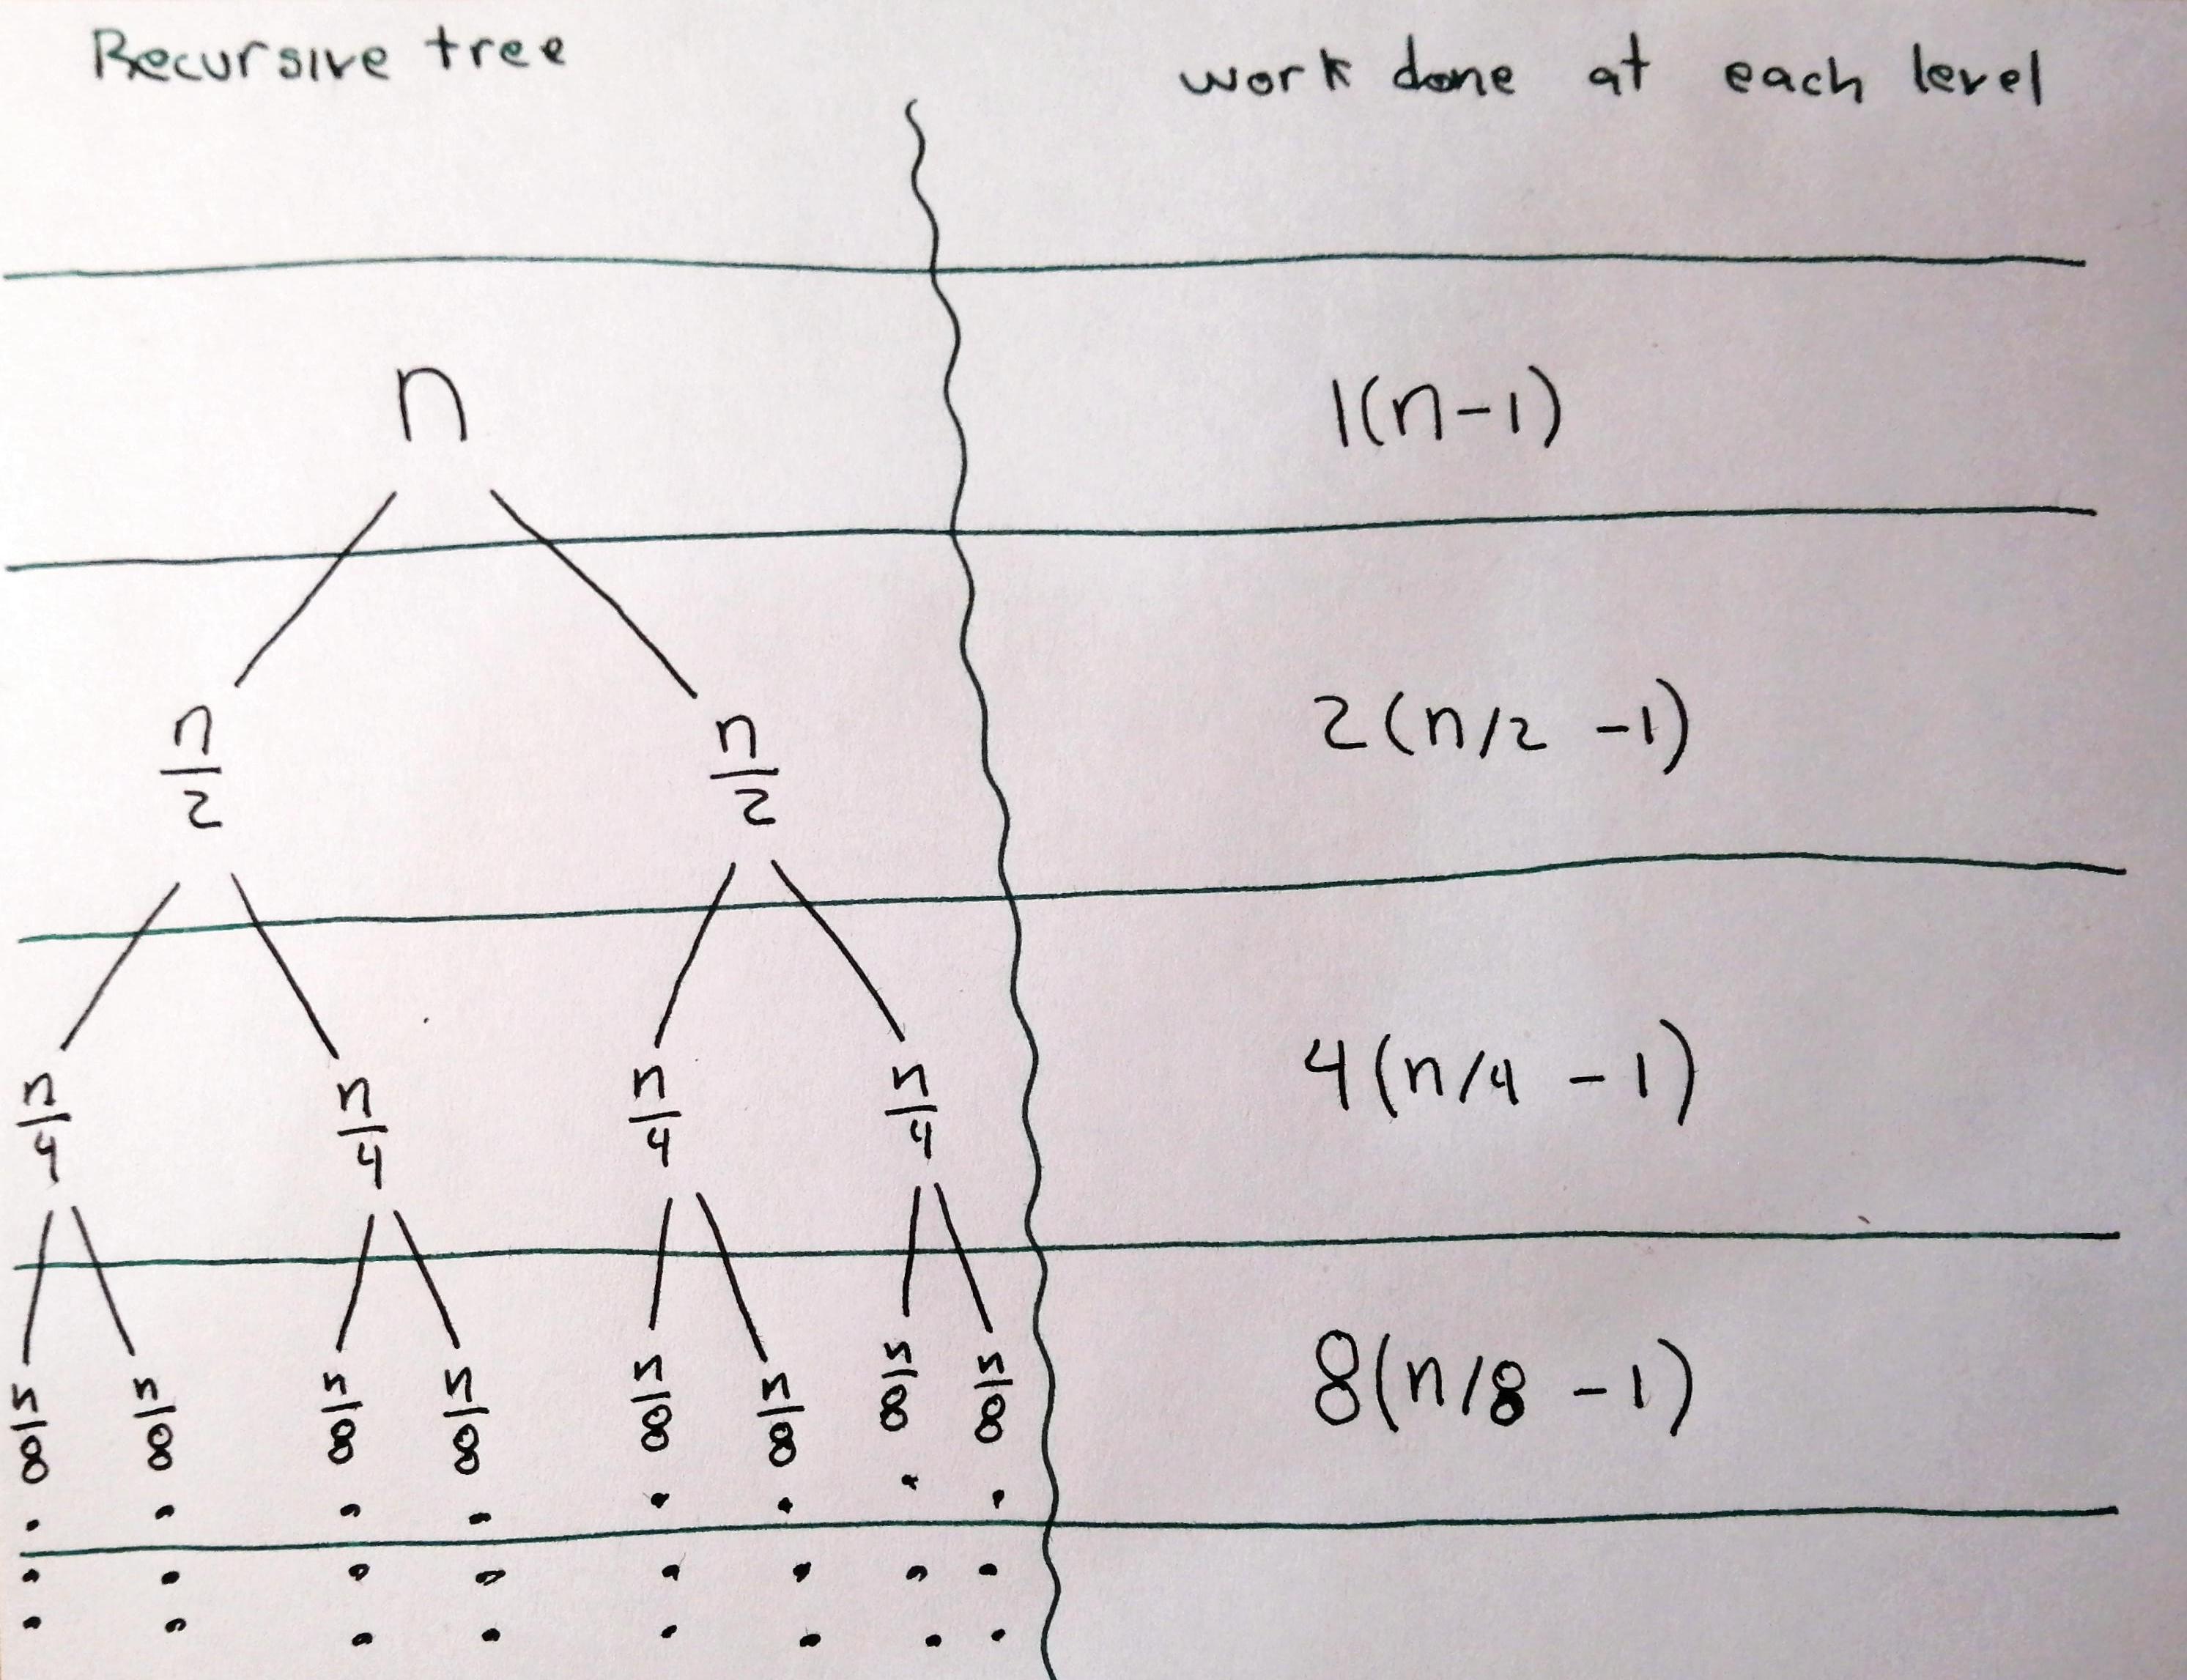 Recursive tree work done at each level
n 1(n-1)
n/2 n/2 2(n/2 -1)
n/4 n/4 n/4 n/4 4(n/4 - 1)
n/8 n/8 n/8 n/8 n/8 n/8 n/8 n/8 8(n/8 - 1)